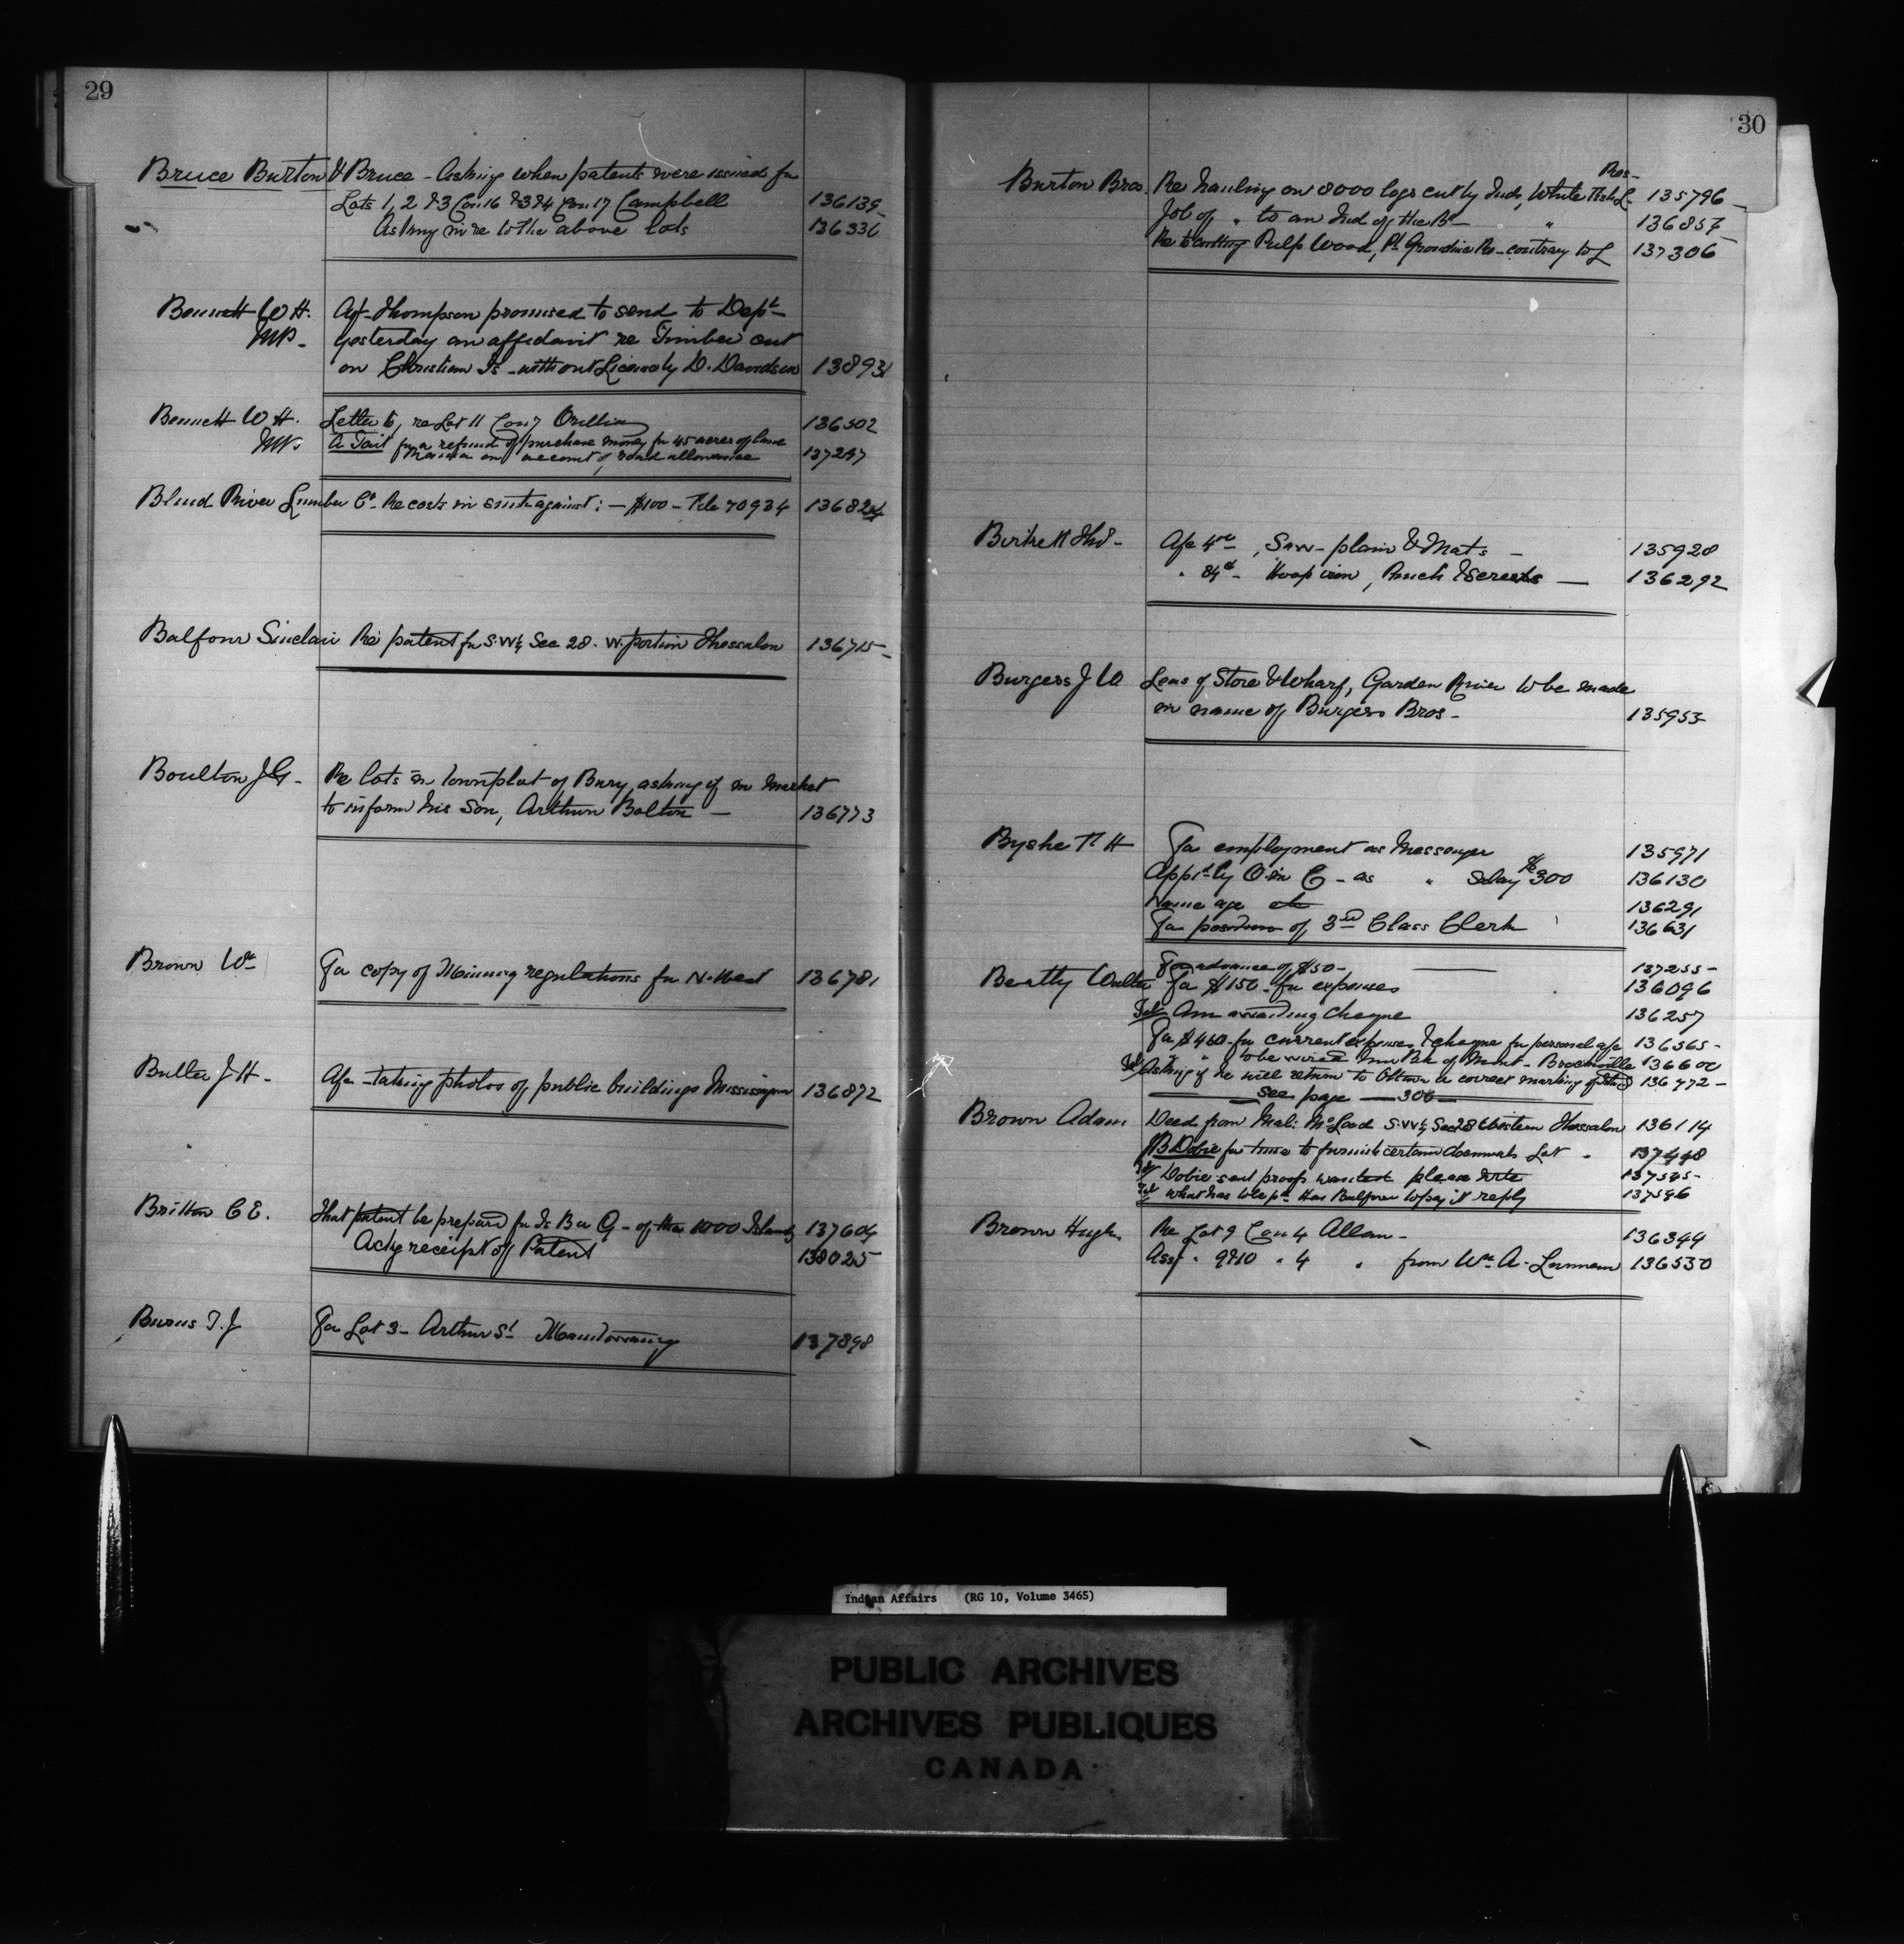 29
Bruce Burton & Bruce - Asking when patents were issued for
Lots 1, 2 & 3 Con 16 & 3 & 4 Con 17 Campbell 136139
Asking in re to the above lots 136336
Bennett W H. Agt Thompson promised to send to Dept
MP. yesterday an affidavit re Timber cut
on Christian Is - without License by D. Davidson 138931
Bennett W H. Letter to, re Lot 11 Con 7 Orillia 136502
MP A Tait for a refund of purchase money for 45 acres of land
on account of road allowance 137297
Blind River Lumber Co. Re costs in suit against: - $100 - File 70934 136824
Balfour Sinclair Re patent for S.W¼ Sec 28. W. portion Thessalon 136715
Boulton J G - Re lots in Townplot of Bury, asking if in market
to inform his Son, Arthur Bolton - 136773
Brown Wm For copy of Mining regulations for N. West 136781
Butler J H - A/c - taking photos of public buildings Mississagua 136872
Britton C E. That patent be prepared for Is B a G - of the 1000 Islands 137604
Ackg receipt of Patent 138025
Burns T. J For Lot 3 - Arthur St Manitowaning 137898
30
Burton Bros. Re hauling on 8000 logs cut by Inds, White Fish L. Res - 135796
Job of " to an Ind of the Bd - " 136857
Re to cutting Pulp Wood, Pt Grondine Re - contrary to L 137306
Birkett Thos - A/c 4 00, Saw - plain & Mats - 135928
" 84 c - Hoop iron, Punch & Screws - 136292
Burgess J W Leas of Store & Wharf, Garden River to be made
in name of Burgess Bros - 135953
Byshe R H For employment as Messenger 135971
Appt by O. in C - as " Salary $300 136130
Name age etc 136291
For position of 3rd Class Clerk 136631
For advance of $50 - 137255
Beatty Walter For $150 - for expenses 136096
Tel Am awaiting cheque 136257
For $460 - for current expenses & cheque for personal a/c 136365
Tel " " to be wired Bk of Mont - Brockville 136600
Tel Asking if he will return to Ottawa to correct marking of 136772
See page - 306
Brown Adam Deed from Mal: McLeod S.W¼ Sec 28 Western Thessalon 136114
JB Dobie for time to furnish certain documents Lot " 137448
Tel Dobie sent proof wanted please write 137545
Tel what has to be pd Has Balfour to pay it reply 137546
Brown Hugh Re Lot 9 Con 4 Allan - 136344
Asst " 9 & 10 " 4 " from Wm A. 136530
Indian Affairs (RG 10, Volume 3465)
PUBLIC ARCHIVES
ARCHIVES PUBLIQUES
CANADA